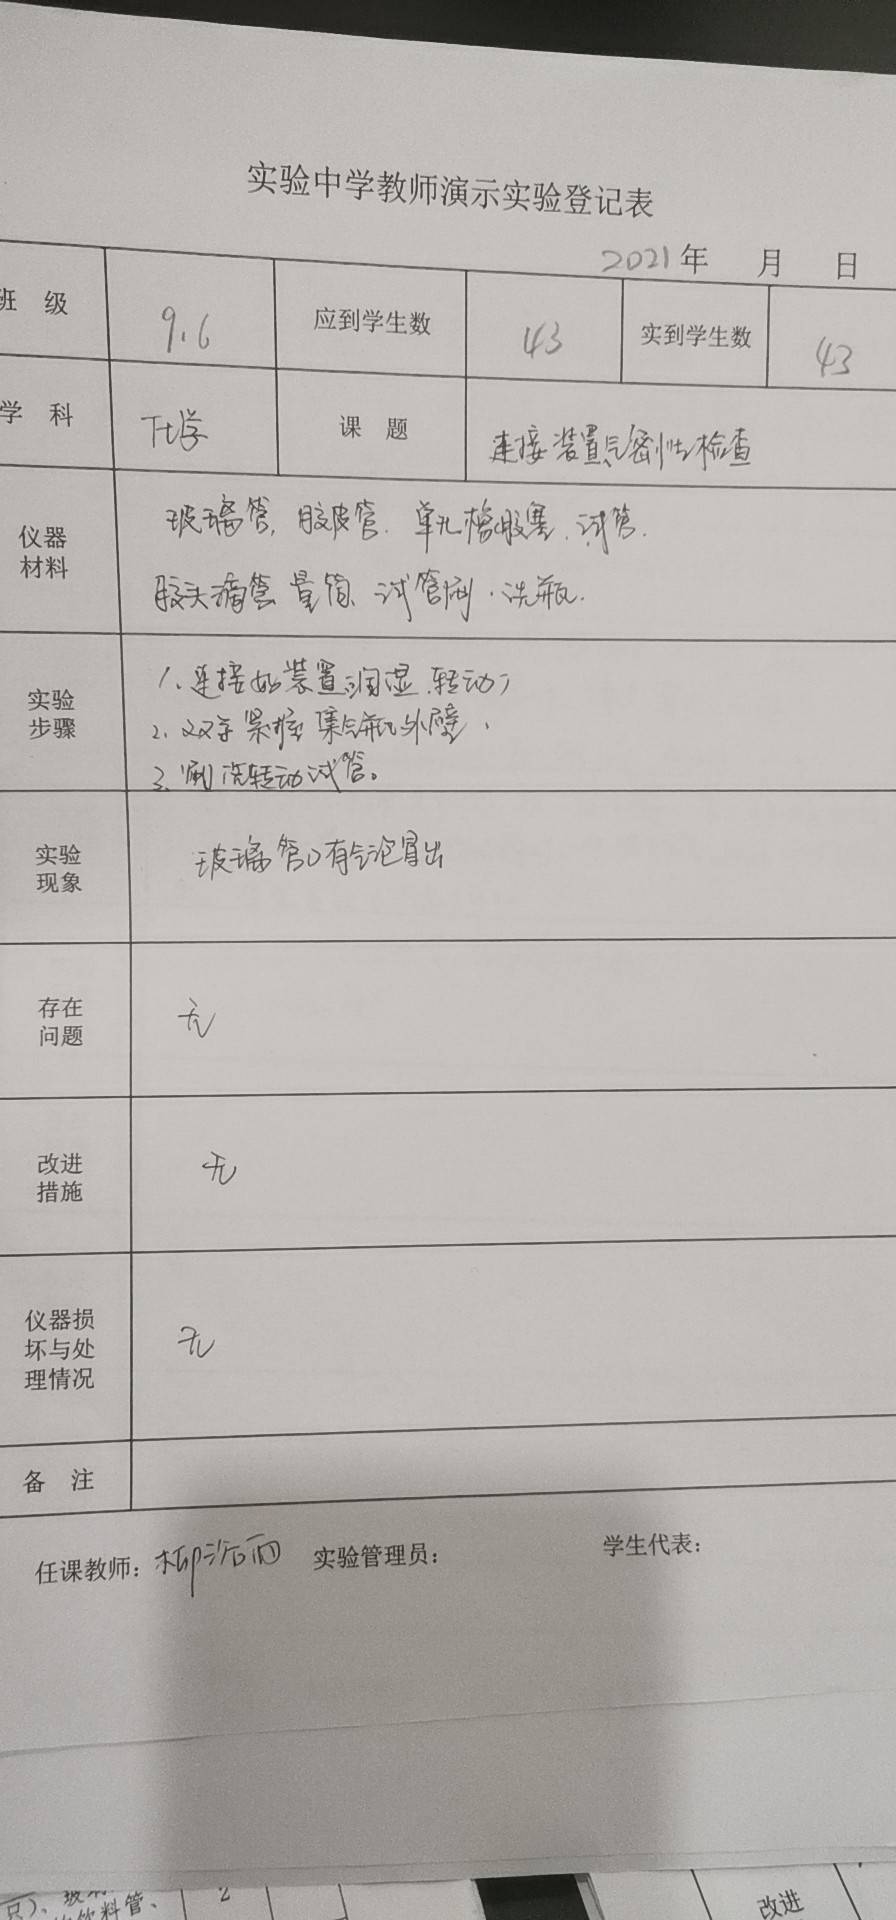 实验中学教师演示实验登记表
2021年 月 日
班 级 9.6 应到学生数 43 实到学生数 43
学 科 化学 课 题 连接装置气密性检查
仪器材料 玻璃管, 胶皮管. 单孔橡胶塞. 试管.
胶头滴管 量筒. 试管刷. 洗瓶.
实验步骤 1、连接好装置 润湿 转动
2、双手紧握集气瓶外壁.
3、刷洗转动试管。
实验现象 玻璃管口有气泡冒出
存在问题 无
改进措施 无
仪器损坏与处理情况 无
备 注
任课教师: 实验管理员: 学生代表:
饮料管、 2
改进